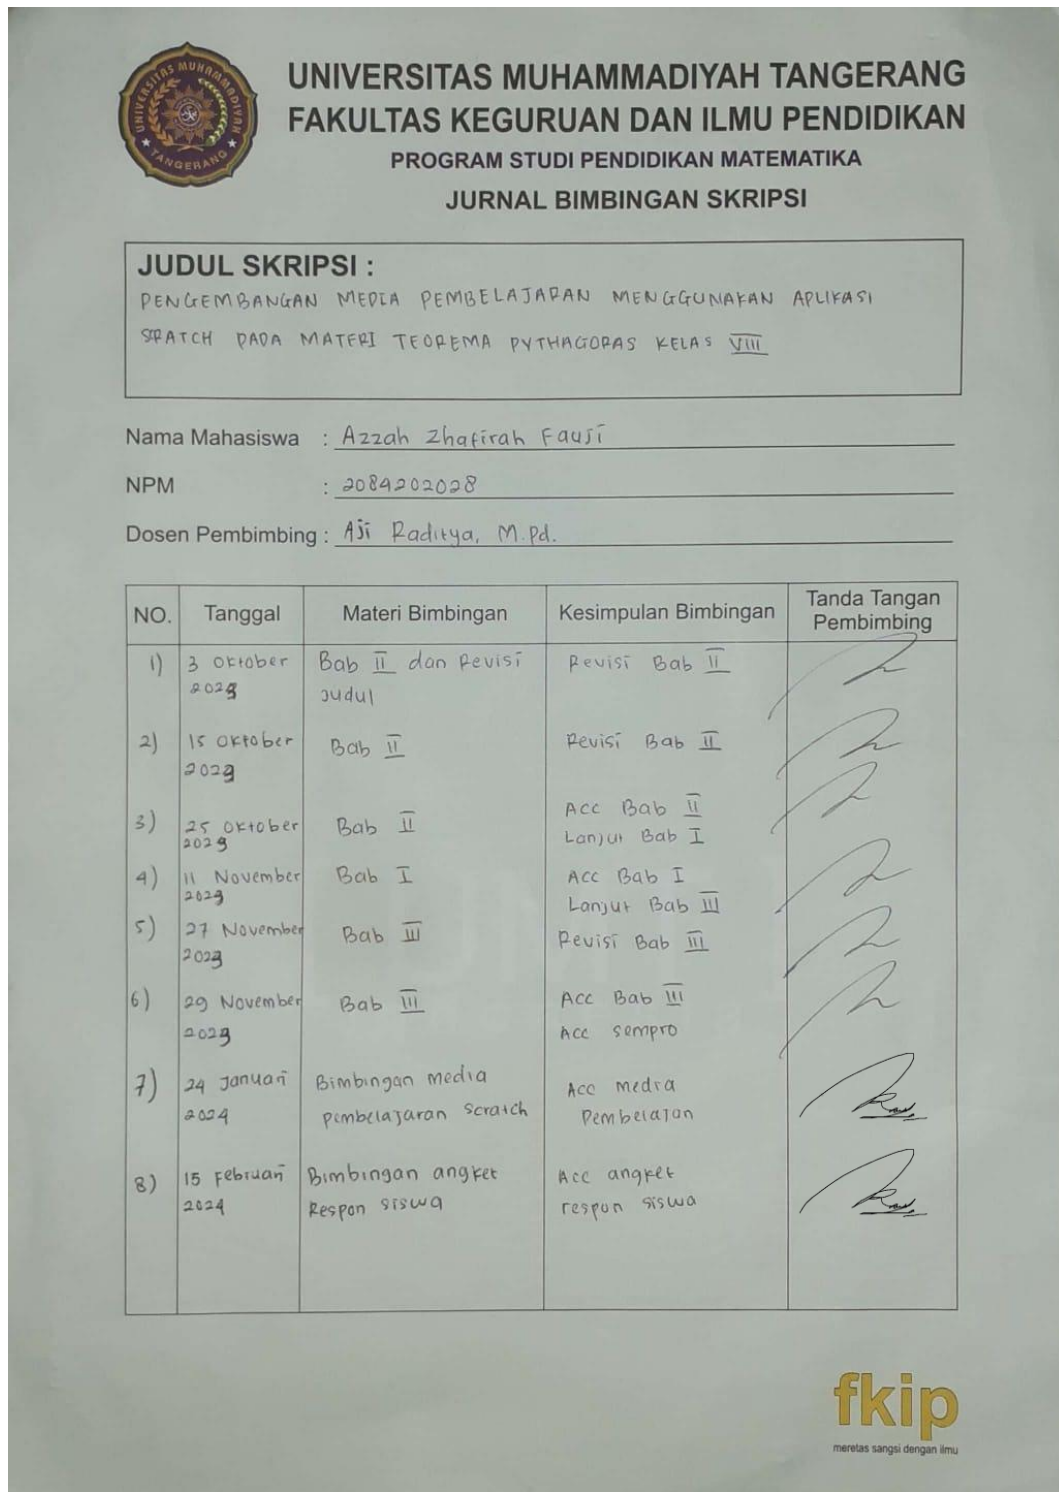 UNIVERSITAS MUHAMMADIYAH TANGERANG
UNIVERSITAS MUHAMMADIYAH TANGERANG
FAKULTAS KEGURUAN DAN ILMU PENDIDIKAN
PROGRAM STUDI PENDIDIKAN MATEMATIKA
JURNAL BIMBINGAN SKRIPSI
JUDUL SKRIPSI :
PENGEMBANGAN MEDIA PEMBELAJARAN MENGGUNAKAN APLIKASI
SRATCH PADA MATERI TEOREMA PYTHAGORAS KELAS VIII
Nama Mahasiswa : Azzah Zhafirah Fauji
NPM : 2084202028
Dosen Pembimbing : Aji Raditya, M.Pd.
NO. Tanggal Materi Bimbingan Kesimpulan Bimbingan Tanda Tangan Pembimbing
1) 3 Oktober Bab II dan Revisi Revisi Bab II
2023 Judul
2) 15 Oktober Bab II Revisi Bab II
2023
Acc Bab II
3) 25 Oktober Bab II Lanjut Bab I
2023
4) 11 November Bab I Acc Bab I
2023 Lanjut Bab III
5) 27 November Bab III Revisi Bab III
2023
6) 29 November Bab III Acc Bab III
2023 Acc sempro
7) 24 Januari Bimbingan media Acc media
2024 pembelajaran Scratch Pembelajan
8) 15 Februari Bimbingan angket Acc angket
2024 Respon siswa respon siswa
fkip
meretas sangsi dengan ilmu